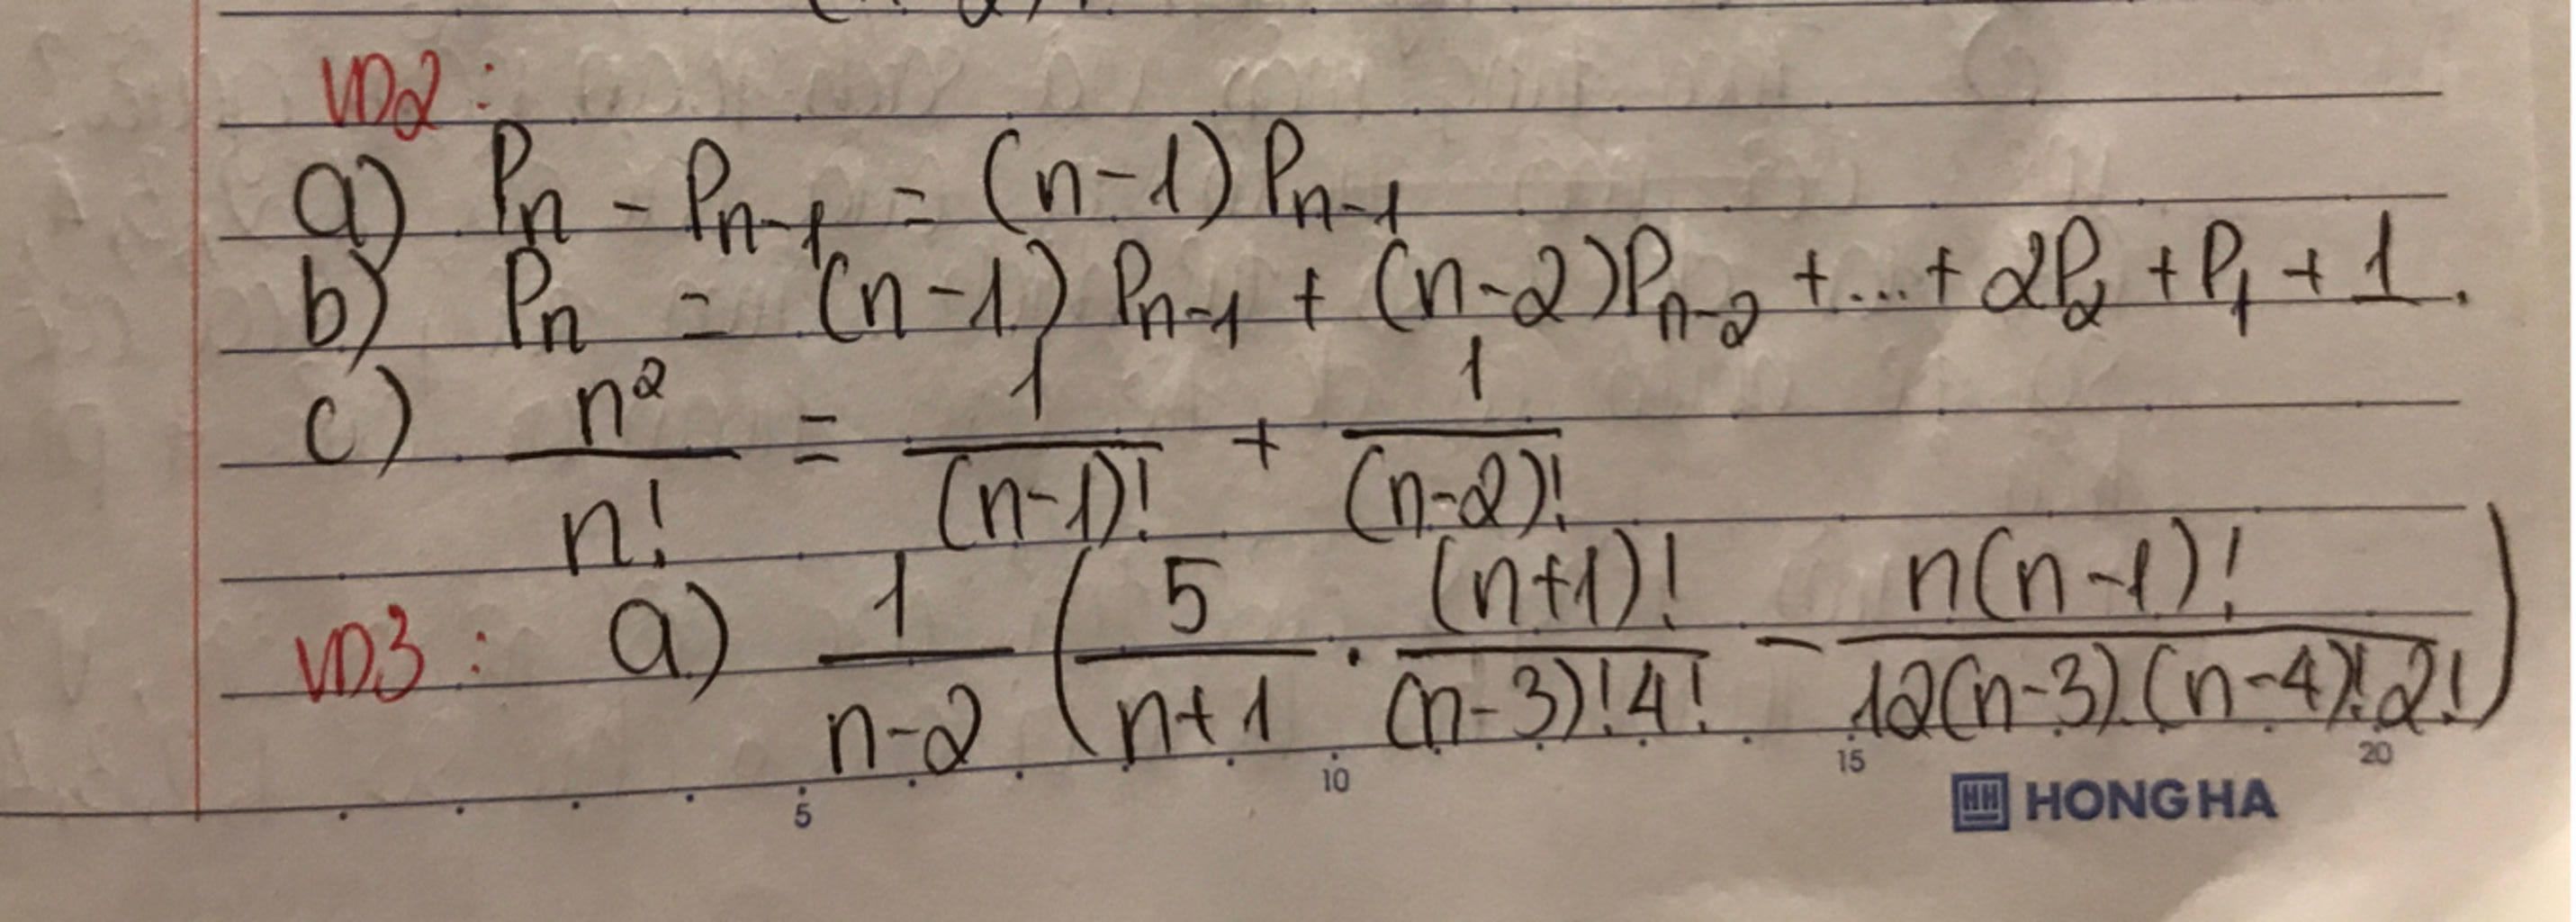 VD2:
a) Pₙ - Pₙ₋₁ = (n-1) Pₙ₋₁
b) Pₙ = (n-1) Pₙ₋₁ + (n-2)Pₙ₋₂ + ... + 2P₂ + P₁ + 1.
c) n²/n! = 1/(n-1)! + 1/(n-2)!
VD3: a) 1/(n-2) (5/(n+1) . (n+1)!/((n-3)!4!) - n(n-1)!/(12(n-3).(n-4)!.2!))
5 10 15 20
HH HONG HA